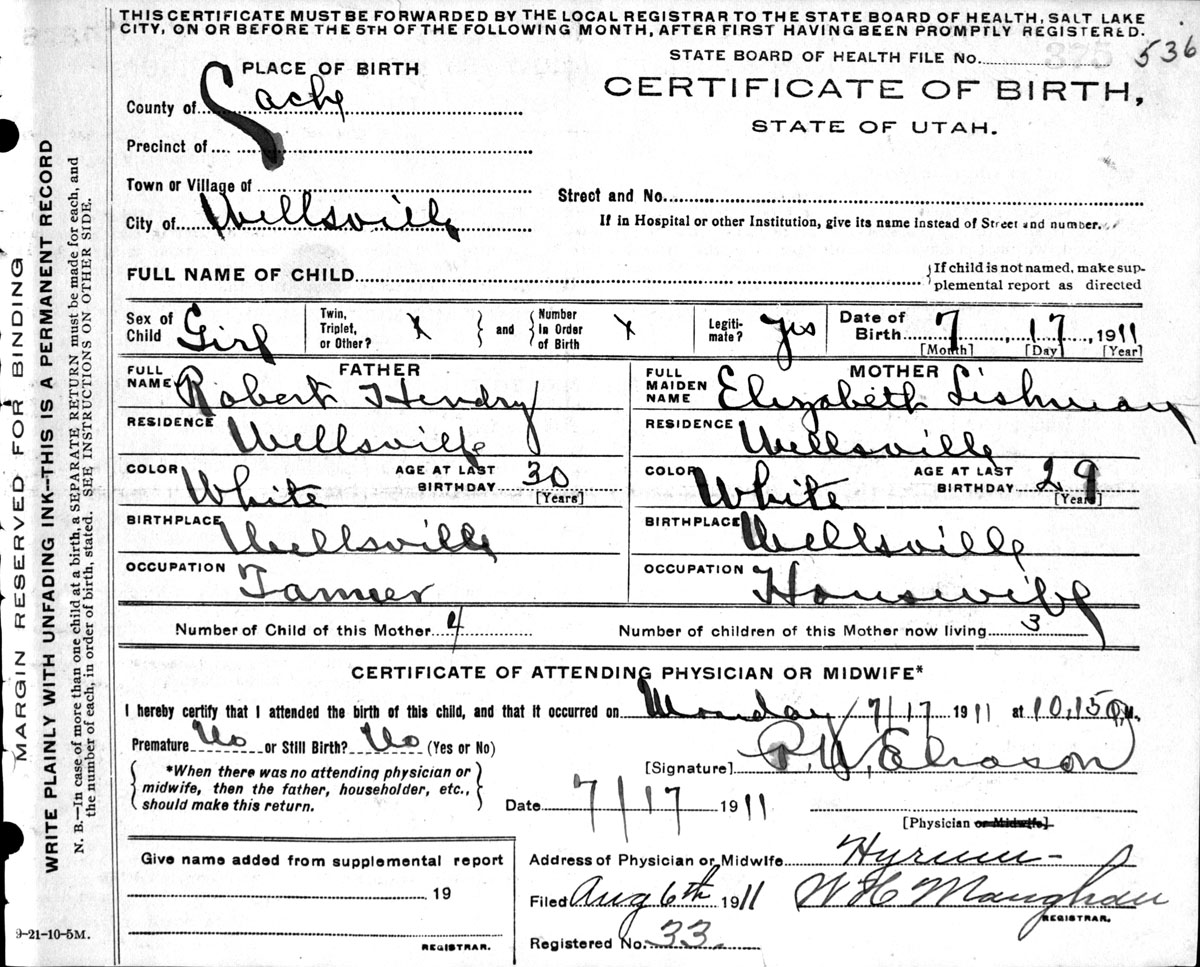 THIS CERTIFICATE MUST BE FORWARDED BY THE LOCAL REGISTRAR TO THE STATE BOARD OF HEALTH, SALT LAKE
CITY, ON OR BEFORE THE 5TH OF THE FOLLOWING MONTH, AFTER FIRST HAVING BEEN PROMPTLY REGISTERED.
STATE BOARD OF HEALTH FILE No. 375 536
PLACE OF BIRTH
CERTIFICATE OF BIRTH,
STATE OF UTAH.
County of Cache
Precinct of
Town or Village of
Street and No.
City of Wellsville
If in Hospital or other Institution, give its name instead of Street and number.
FULL NAME OF CHILD
If child is not named, make sup-
plemental report as directed
Sex of Child Girl Twin, Triplet, or Other? X and Number in Order of Birth X Legiti- mate? Yes Date of Birth 7, 17, 1911
[Month] [Day] [Year]
FATHER MOTHER
FULL NAME Robert Hendry FULL MAIDEN NAME Elizabeth Lishman
RESIDENCE Wellsville RESIDENCE Wellsville
COLOR White AGE AT LAST BIRTHDAY 30 [Years] COLOR White AGE AT LAST BIRTHDAY 29 [Years]
BIRTHPLACE Wellsville BIRTHPLACE Wellsville
OCCUPATION Farmer OCCUPATION Housewife
Number of Child of this Mother 4 Number of children of this Mother now living 3
CERTIFICATE OF ATTENDING PHYSICIAN OR MIDWIFE*
I hereby certify that I attended the birth of this child, and that it occurred on Monday 7/17 1911 at 10,15 P.M.
Premature No or Still Birth? No (Yes or No)
[Signature] Eliason
*When there was no attending physician or
midwife, then the father, householder, etc.,
should make this return.
Date 7/17 1911
[Physician or Midwife]
Give name added from supplemental report
19
REGISTRAR.
Address of Physician or Midwife Hyrum
Filed Aug 6th 1911 W H Maughan
REGISTRAR.
Registered No. 33.
9-21-10-5M.
MARGIN RESERVED FOR BINDING
WRITE PLAINLY WITH UNFADING INK—THIS IS A PERMANENT RECORD
N. B.—In case of more than one child at a birth, a SEPARATE RETURN must be made for each, and
the number of each, in order of birth, stated. SEE INSTRUCTIONS ON OTHER SIDE.